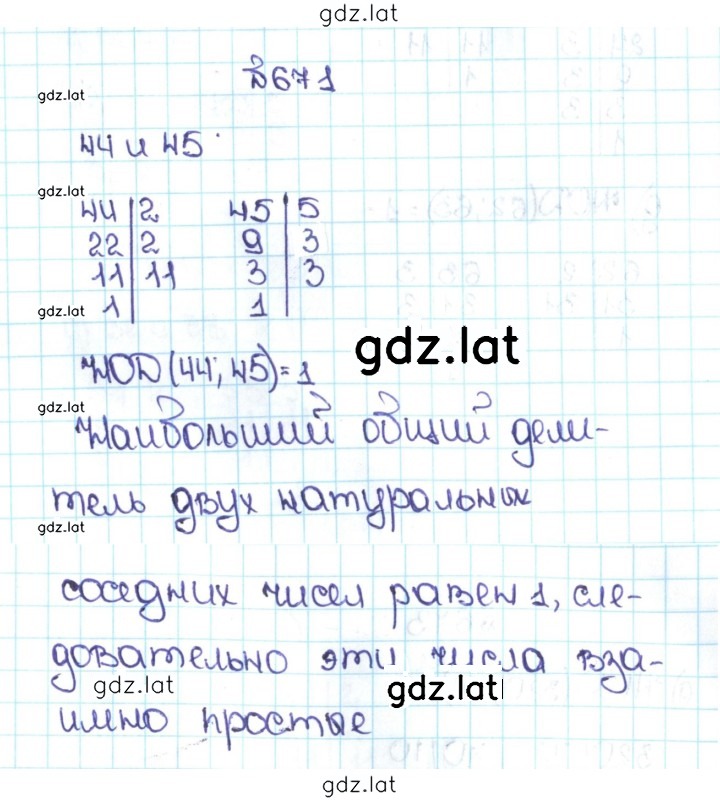 gdz.lat
№671
gdz.lat
44 и 45
gdz.lat
44 | 2 45 | 5
22 | 2 9 | 3
11 | 11 3 | 3
gdz.lat 1 | 1 |
gdz.lat
НОД (44; 45) = 1
gdz.lat
Наибольший общий дели-
тель двух натуральных
gdz.lat
соседних чисел равен 1, сле-
довательно эти числа вза-
gdz.lat gdz.lat
имно простые
gdz.lat